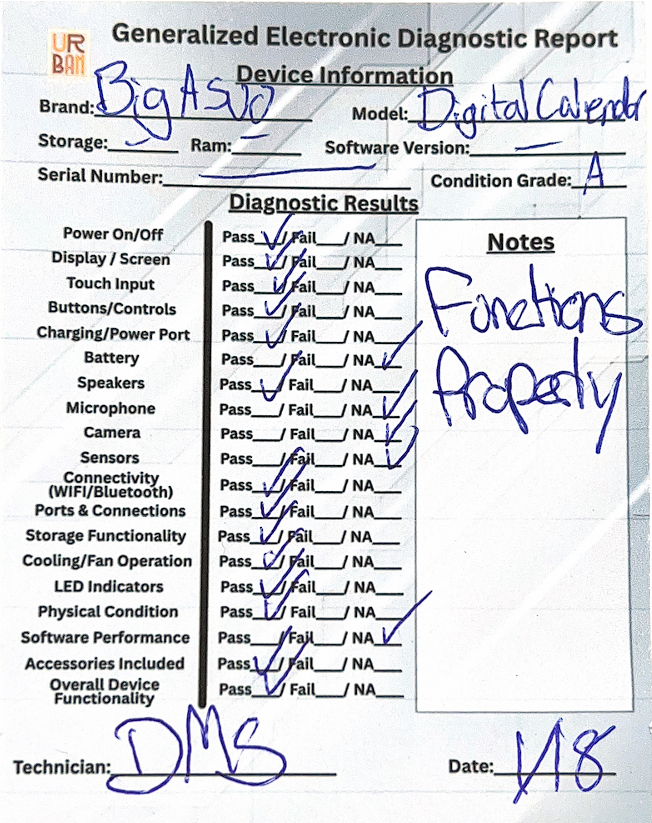 UR
BAN
Generalized Electronic Diagnostic Report
Device Information
Brand: BigASUO Model: Digital Calendar
Storage: — Ram: — Software Version: —
Serial Number: — Condition Grade: A
Diagnostic Results
Notes
Functions
Properly
Power On/Off Pass ✓/ Fail___/ NA___
Display / Screen Pass ✓/ Fail___/ NA___
Touch Input Pass ✓/ Fail___/ NA___
Buttons/Controls Pass ✓/ Fail___/ NA___
Charging/Power Port Pass ✓/ Fail___/ NA___
Battery Pass___/ Fail___/ NA ✓
Speakers Pass ✓/ Fail___/ NA___
Microphone Pass___/ Fail___/ NA ✓
Camera Pass___/ Fail___/ NA ✓
Sensors Pass___/ Fail___/ NA ✓
Connectivity
(WIFI/Bluetooth) Pass ✓/ Fail___/ NA___
Ports & Connections Pass ✓/ Fail___/ NA___
Storage Functionality Pass ✓/ Fail___/ NA___
Cooling/Fan Operation Pass ✓/ Fail___/ NA___
LED Indicators Pass ✓/ Fail___/ NA___
Physical Condition Pass ✓/ Fail___/ NA___
Software Performance Pass___/ Fail___/ NA ✓
Accessories Included Pass ✓/ Fail___/ NA___
Overall Device
Functionality Pass ✓/ Fail___/ NA___
Technician: DMS Date: 1/18